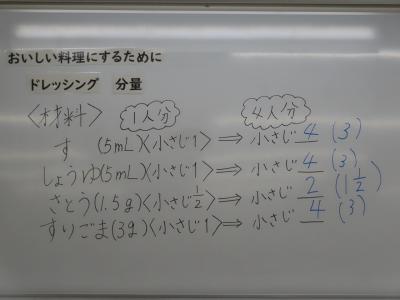 おいしい料理にするために
ドレッシング 分量
〈材料〉 1人分 4人分
す (5mL)〈小さじ1〉⇒ 小さじ 4 (3)
しょうゆ(5mL)〈小さじ1〉⇒ 小さじ 4 (3)
さとう(1.5g)〈小さじ1/2〉⇒ 小さじ 2 (1 1/2)
すりごま(3g)〈小さじ1〉⇒ 小さじ 4 (3)